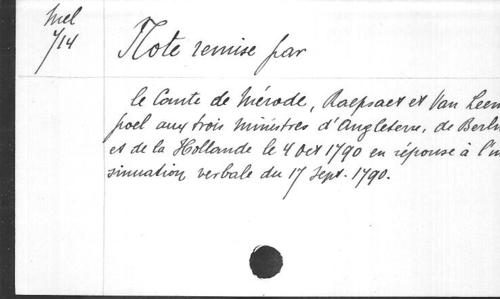 Mel
4/14
Note remise par
le Comte de Mérode, Raepsaet et Van Leem
poel aux trois ministres d'Angleterre, de Berlin
et de la Hollande le 4 Oct 1790 en réponse à l'in
sinuation verbale du 17 Sept. 1790.